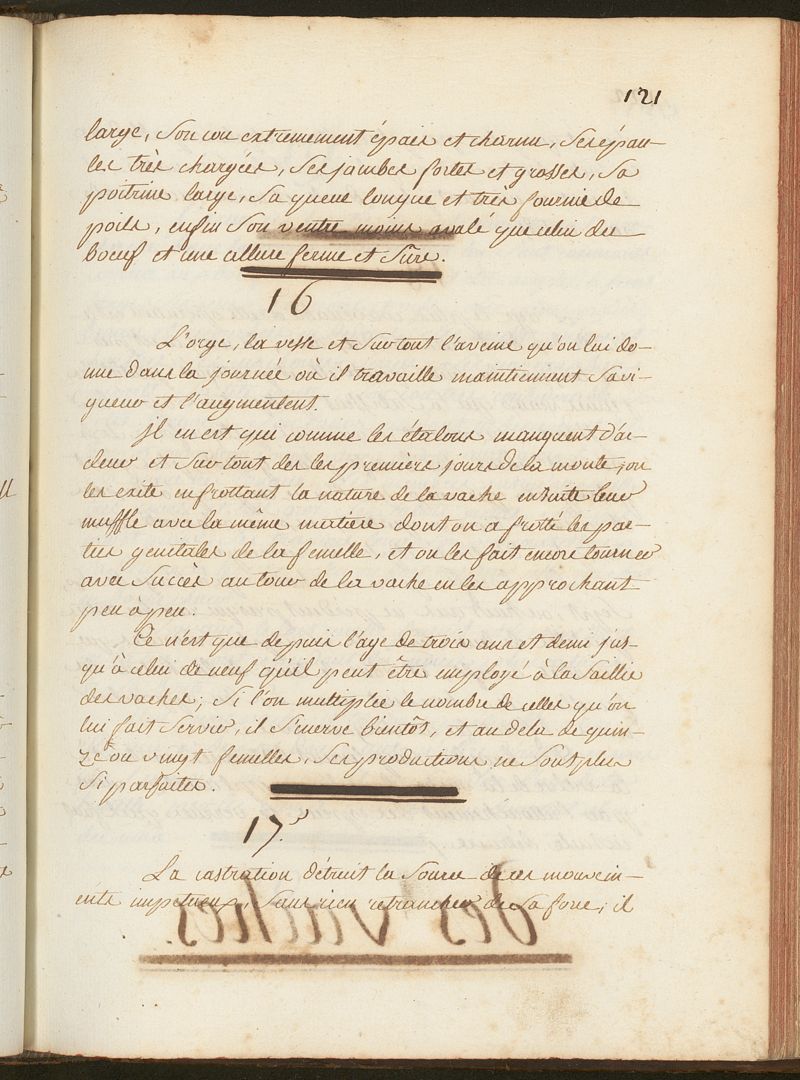 121
large, son cou extremement épais et charnu, ses épau-
les très chargées, ses jambes fortes et grosses, sa
poitrine large, sa queue longue et très fournie de
poils, enfin son ventre moins avalé que celui du
boeuf et une allure ferme et sûre.
16
L'orge, la vesse et surtout l'aveine qu'on lui do-
nne dans la journée où il travaille maintiennent sa vi-
gueur et l'augmentent.
Il en est qui comme les étalons manquent d'ar-
deur et surtout des les premiers jours de la monte, on
les exite en frottant la nature de la vache ensuite leur
muffle avec la même matiere dont on a frotté les par-
ties genitales de la femelle, et on les fait encore tourner
avec succès autour de la vache en les approchant
peu à peu.
Ce n'est que depuis l'age de trois ans et demi jus-
qu'à celui de neuf qu'il peut être employé à la saillie
des vaches; si l'on multiplie le nombre de celles qu'on
lui fait servir, il s'énerve bientôt, et au dela de quin-
ze ou vingt femelles, ses productions ne sont plus
si parfaites.
17
La castration détruit la source de ces mouvem-
ents impetueux, sans rien retrancher de sa force; il
des vaches.